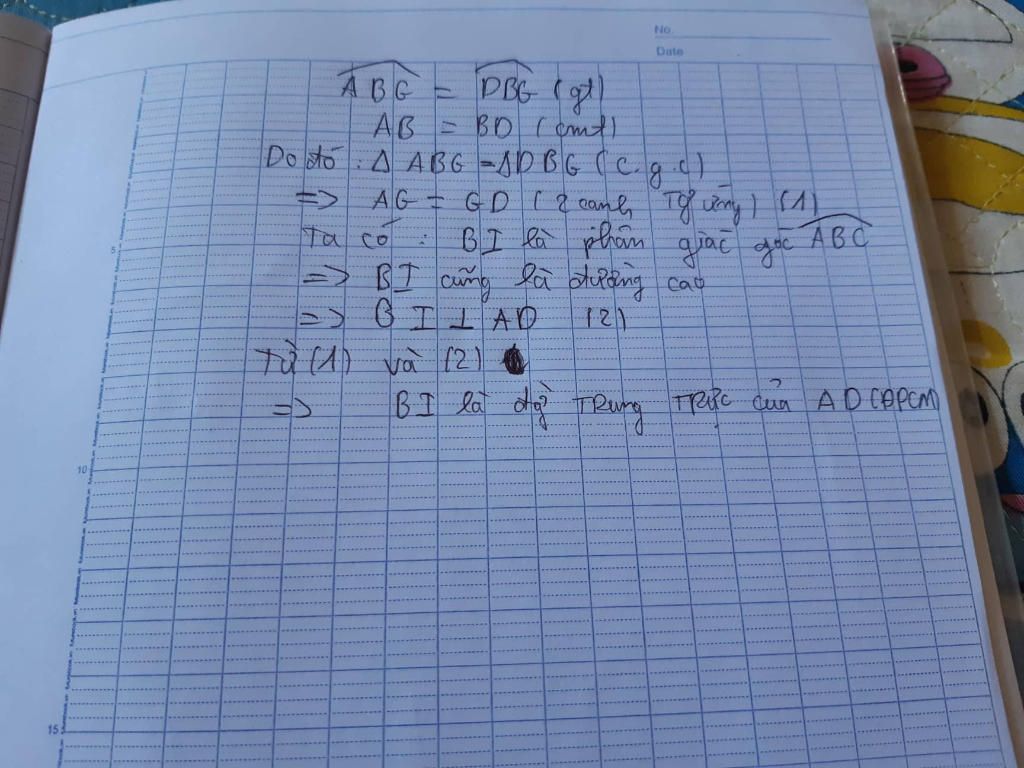 No.
Date
ABG = DBG (gt)
AB = BD (cmt)
Do đó: Δ ABG = Δ DBG (c.g.c)
=> AG = GD (2 cạnh Tg ứng) (1)
5
Ta có: BI là phân giác góc ABC
=> BI cũng là đường cao
=> BI ⊥ AD (2)
Từ (1) và (2)
=> BI là đg Trung Trực của AD (ĐPCM)
10
15